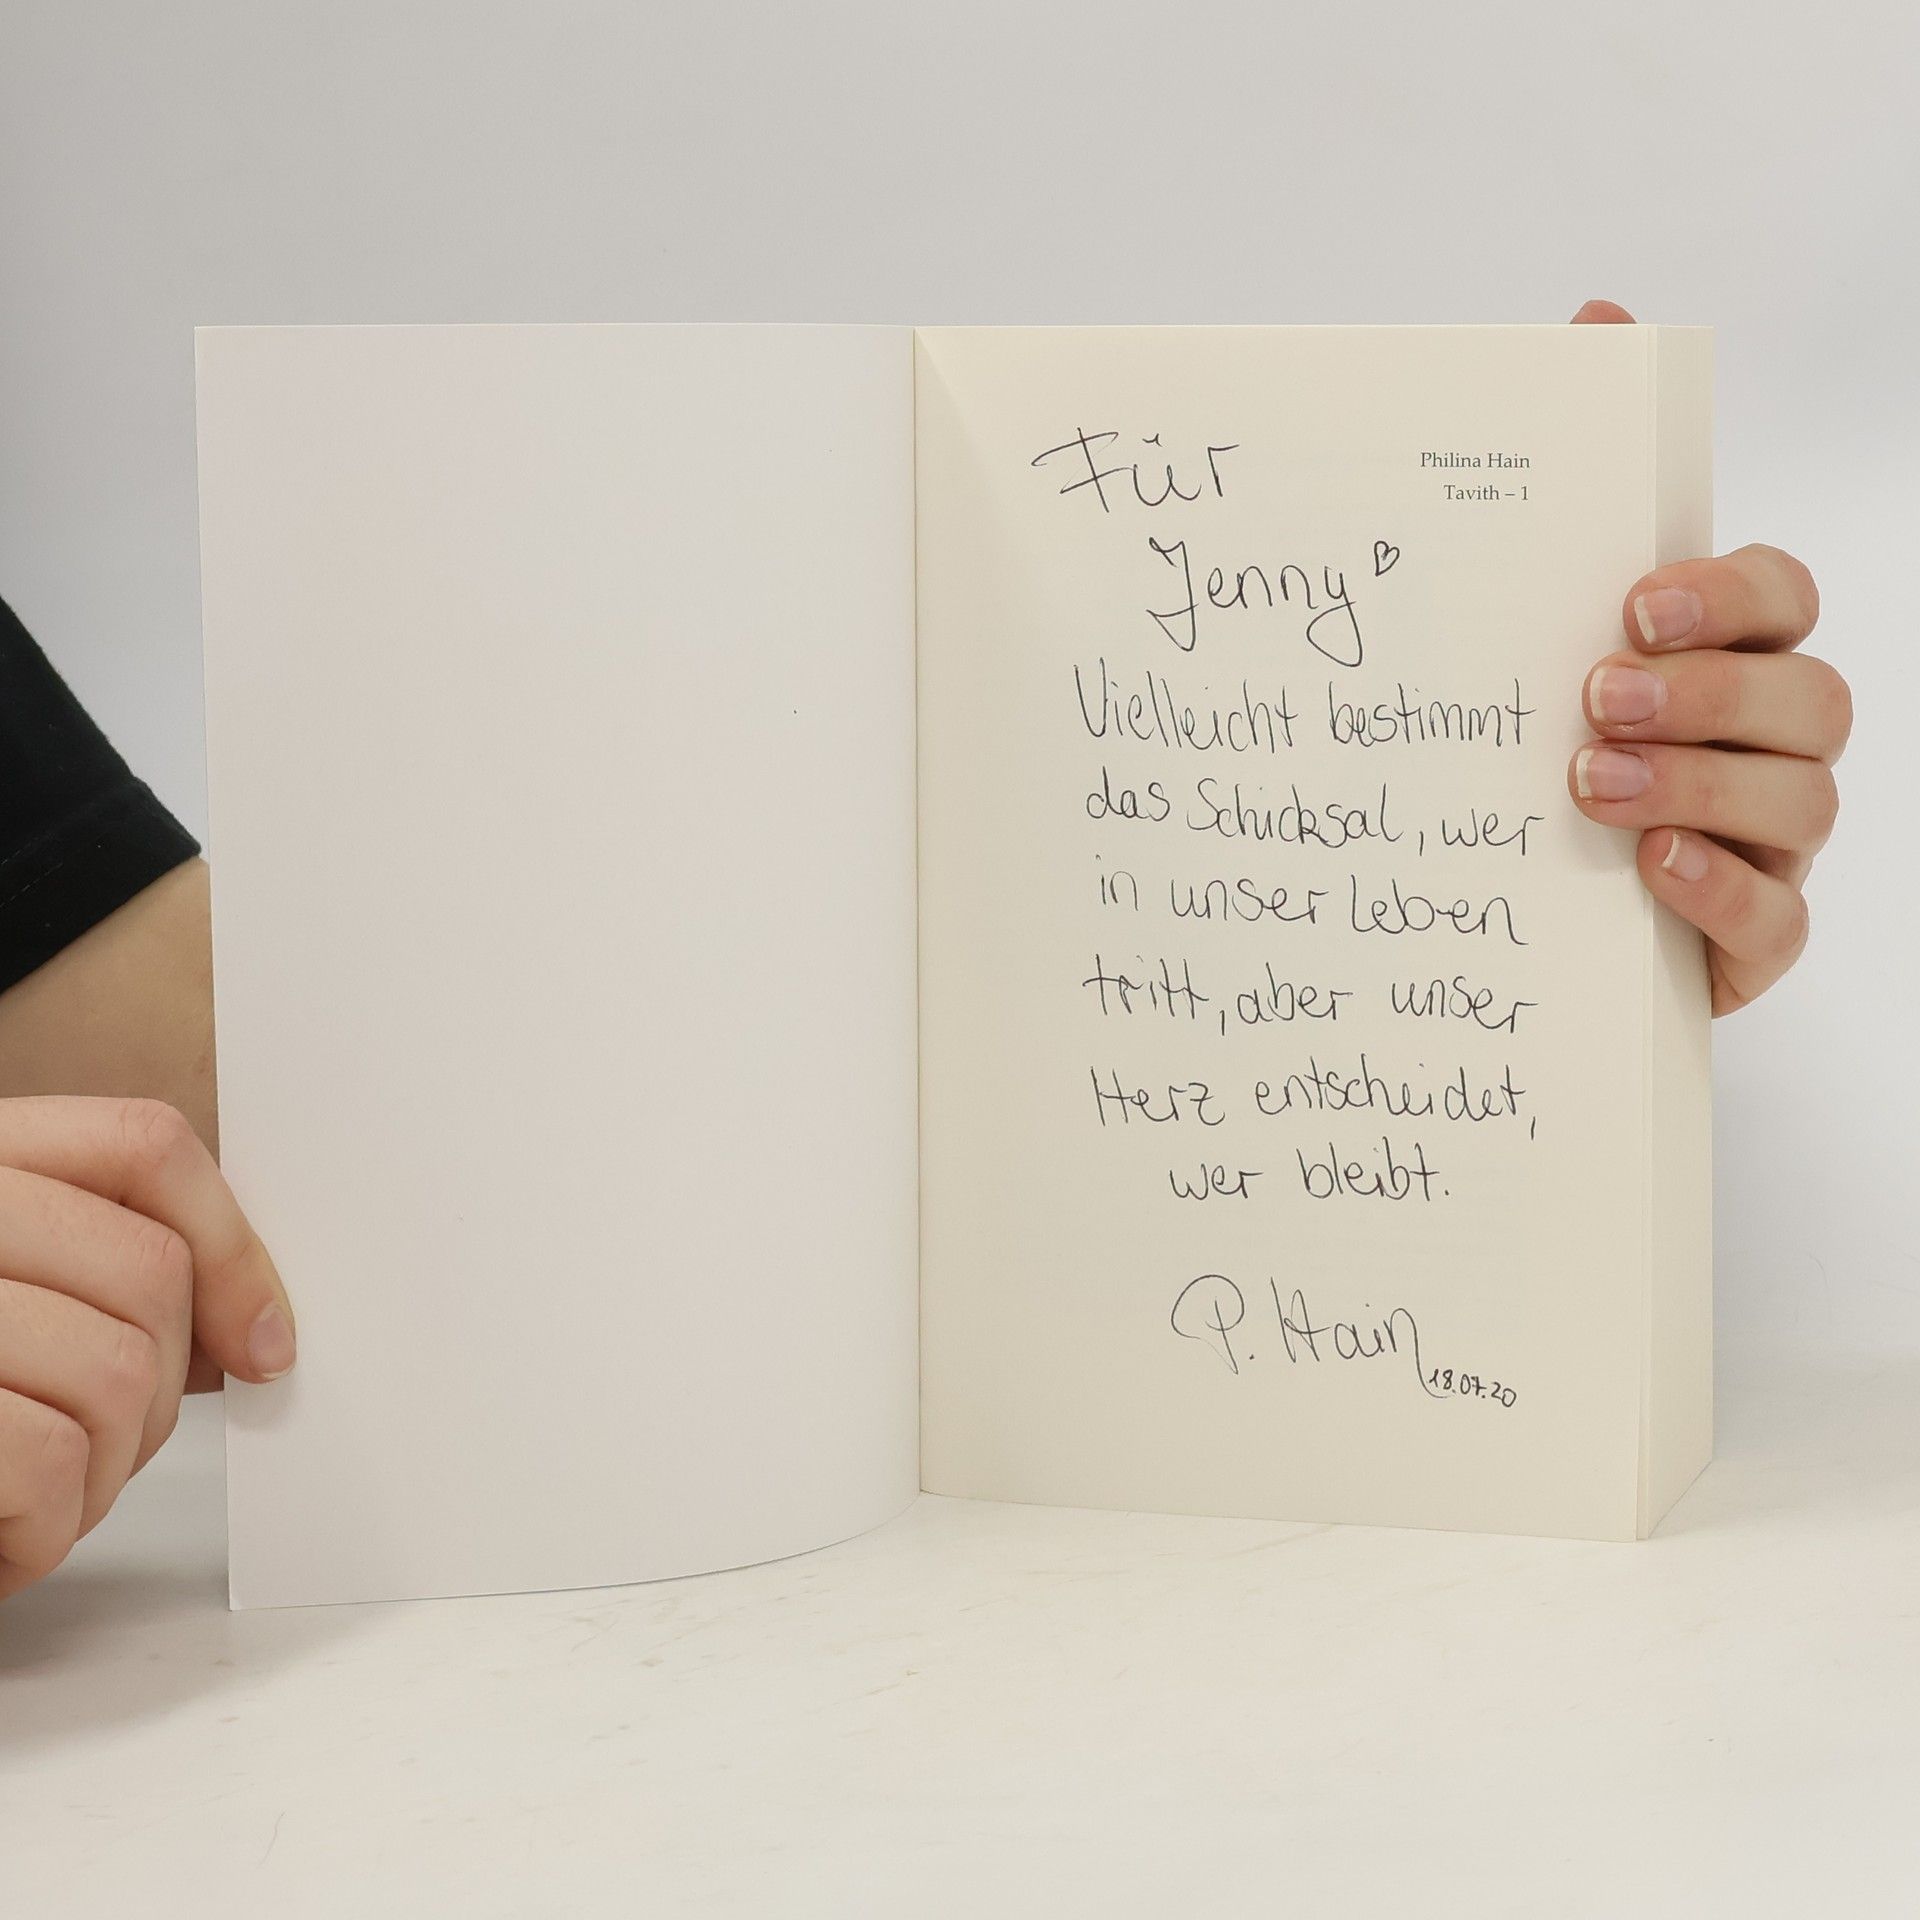 Philina Hain
Tavith – 1
Für
Jenny ♡
Vielleicht bestimmt
das Schicksal, wer
in unser Leben
tritt, aber unser
Herz entscheidet,
wer bleibt.
P. Hain
18.07.20